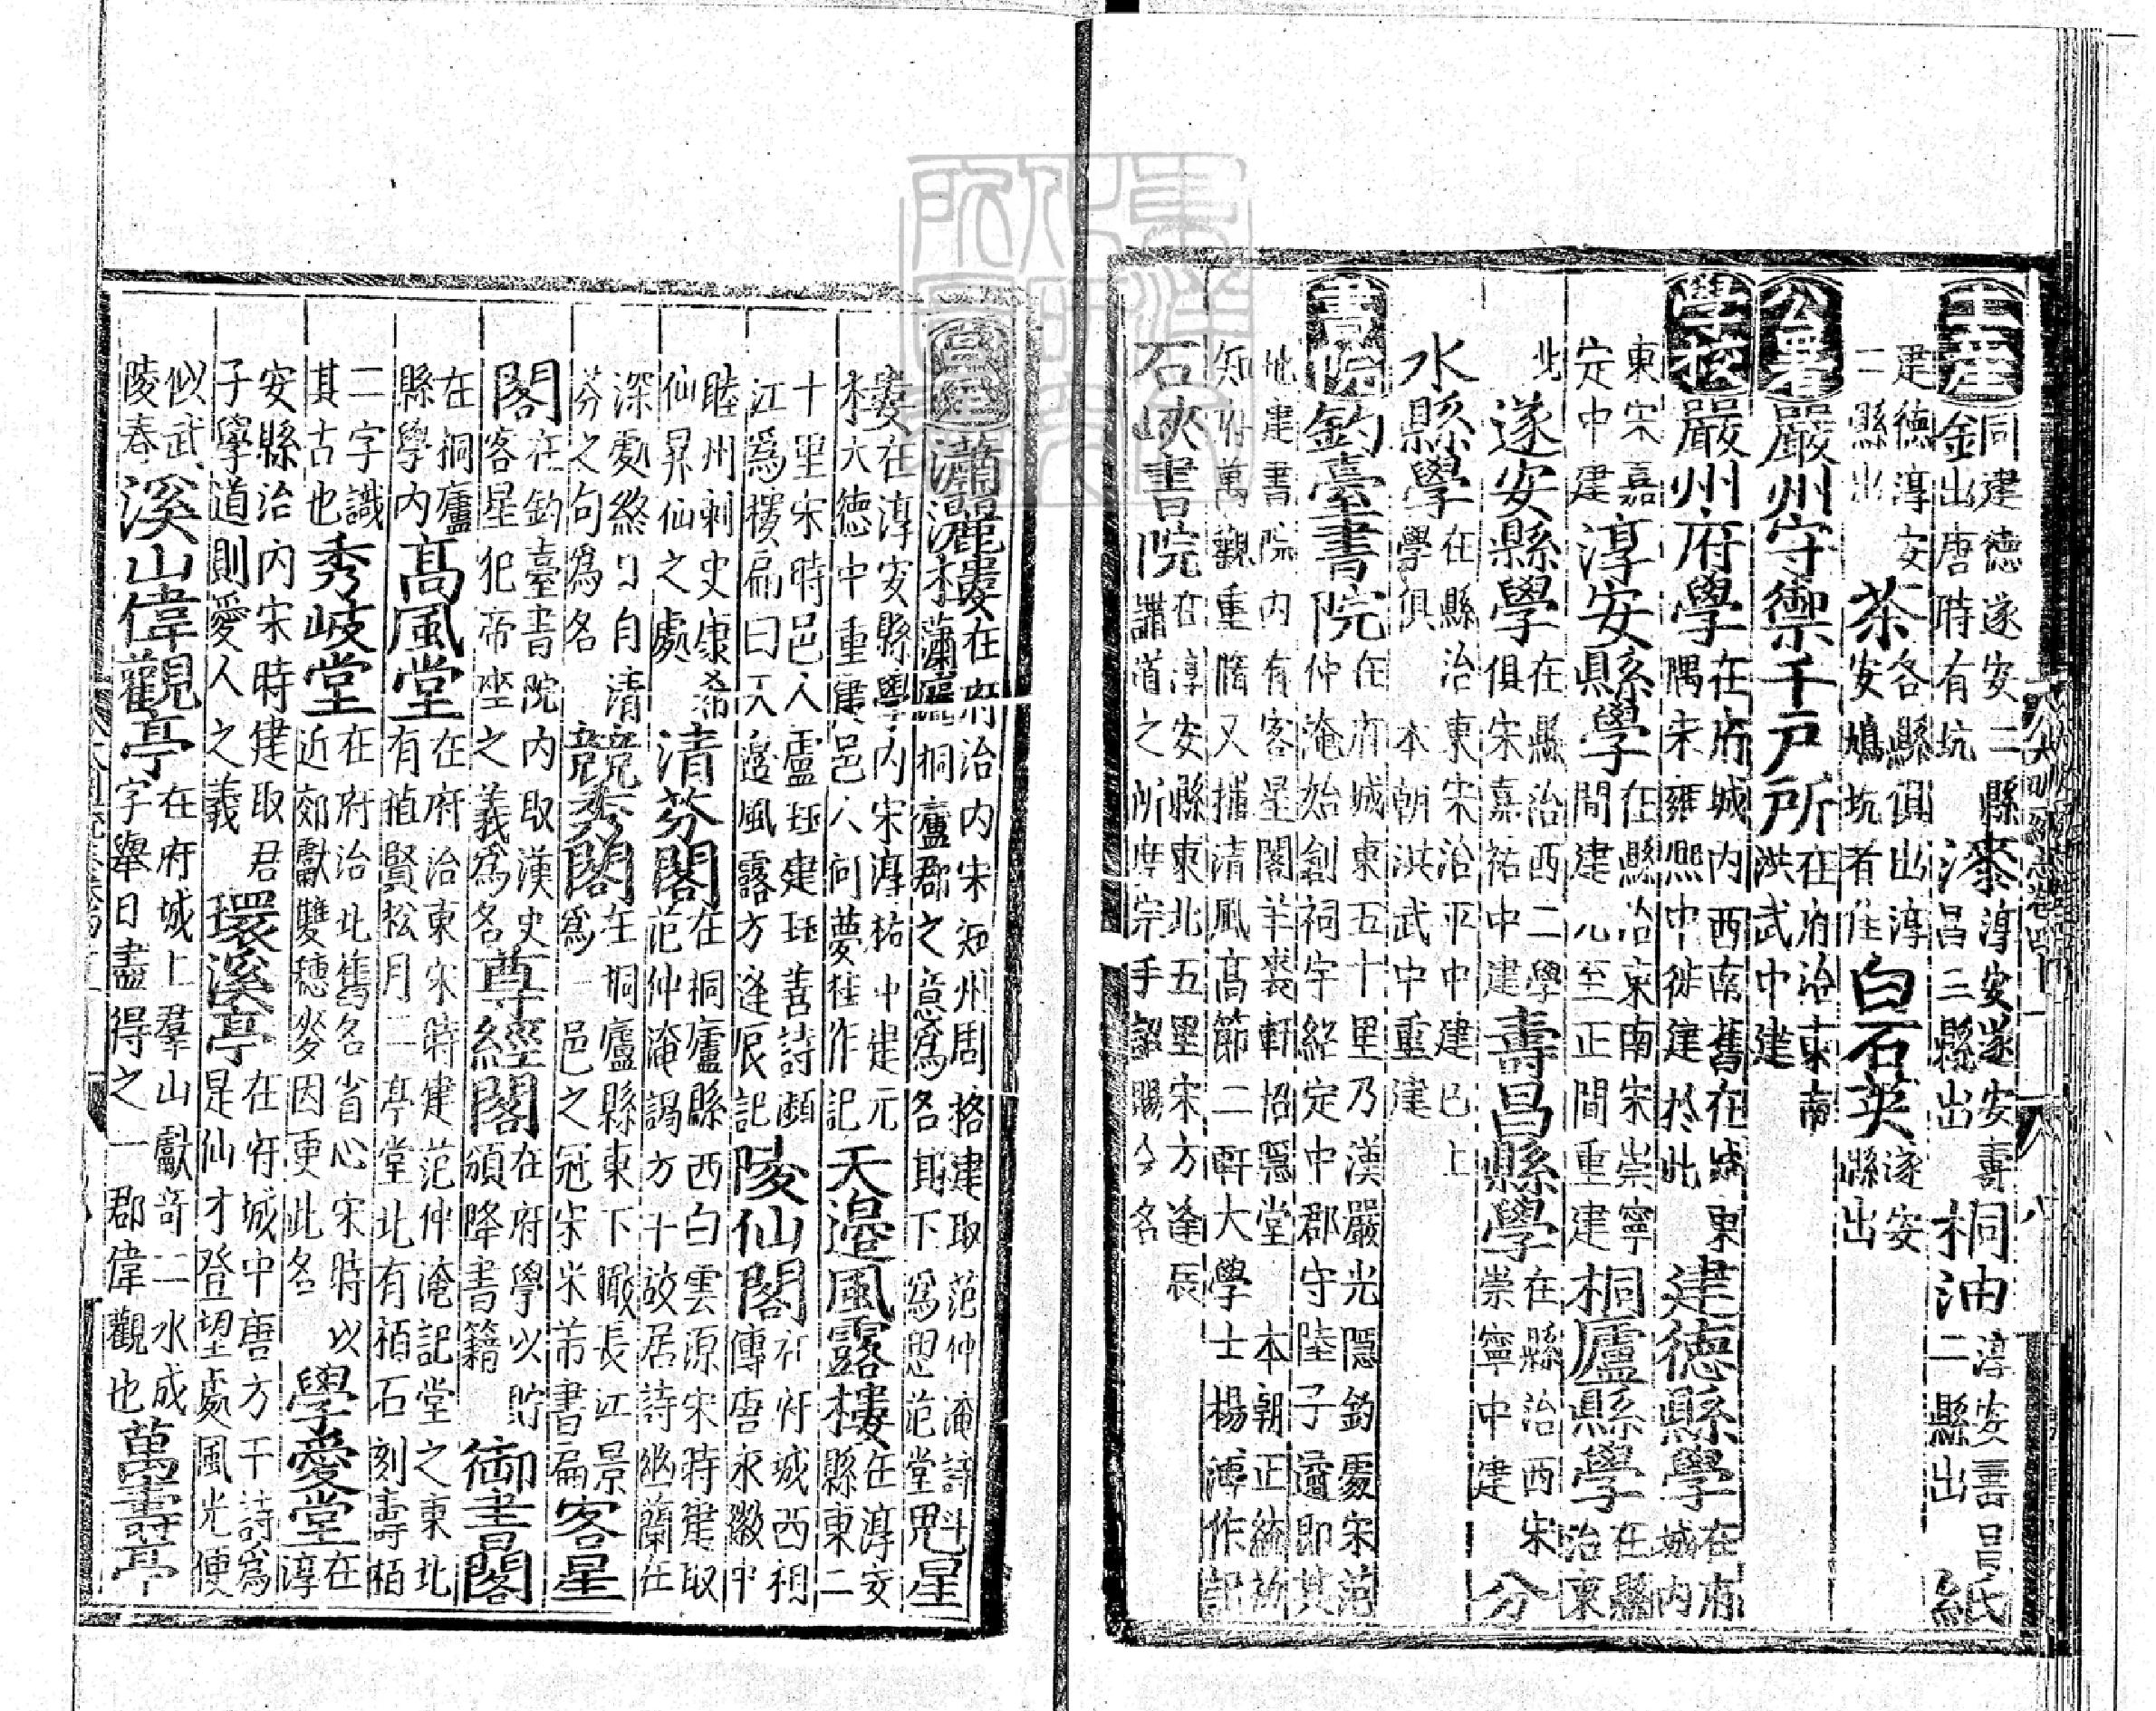 土產銅建德遂安二縣出唐時有坑漆淳安遂安壽昌三縣出桐油淳安壽昌二縣出紙
建德淳安二縣出茶各縣俱出淳安鳩坑者佳白石英遂安縣出
公署嚴州守禦千戶所在府治東南洪武中建
學校嚴州府學在府城內西南舊在城東隅宋雍熙中徙建於此建德縣學在府城內
東宋嘉定中建淳安縣學在縣治東南宋崇寧間建元至正間重建桐廬縣學在縣治東
北遂安縣學在縣治西二學俱宋嘉祐中建壽昌縣學在縣治西宋崇寧中建分
水縣學在縣治東宋治平中建已上學俱 本朝洪武中重建
書院釣臺書院在府城東五十里乃漢嚴光隱釣處宋范仲淹始創祠宇紹定中郡守陸子遹即其
地建書院內有客星閣羊裘軒招隱堂 本朝正統初知府萬觀重脩又搆清風高節二軒大學士楊溥作記
石峽書院在淳安縣東北五里宋方逢辰講道之所度宗手詔賜今名
宮室瀟灑樓在府治內宋知州周格建取范仲淹詩瀟灑桐廬郡之意爲名其下爲思范堂魁星
樓在淳安縣學內宋淳祐中建元大德中重建邑人何夢桂作記天邊風露樓在淳安縣東二
十里宋時邑人盧珏建珏善詩瀕江爲樓扁曰天邊風露方逢辰記陵仙閣在府城西相傳唐永徽中
睦州刺史康希仙昇仙之處清芬閣在桐廬縣西白雲源宋時建取范仲淹謁方干故居詩幽蘭在
深處終日自清芬之句爲名競秀閣在桐廬縣東下瞰長江景爲一邑之冠宋米芾書扁客星
閣在釣臺書院內取漢史客星犯帝座之義爲名尊經閣在府學以貯頒降書籍御書閣
在桐廬縣學內高風堂在府治東宋時建范仲淹記堂之東北有植賢松月二亭堂北有栢石刻壽栢
二字識其古也秀岐堂在府治北舊名省心宋時以近郊獻雙穗麥因更此名學愛堂在淳
安縣治內宋時建取君子學道則愛人之義環溪亭在府城中唐方干詩爲是仙才登望處風光便
似武陵春溪山偉觀亭在府城上羣山獻奇二水成字舉目盡得之一郡偉觀也萬壽亭